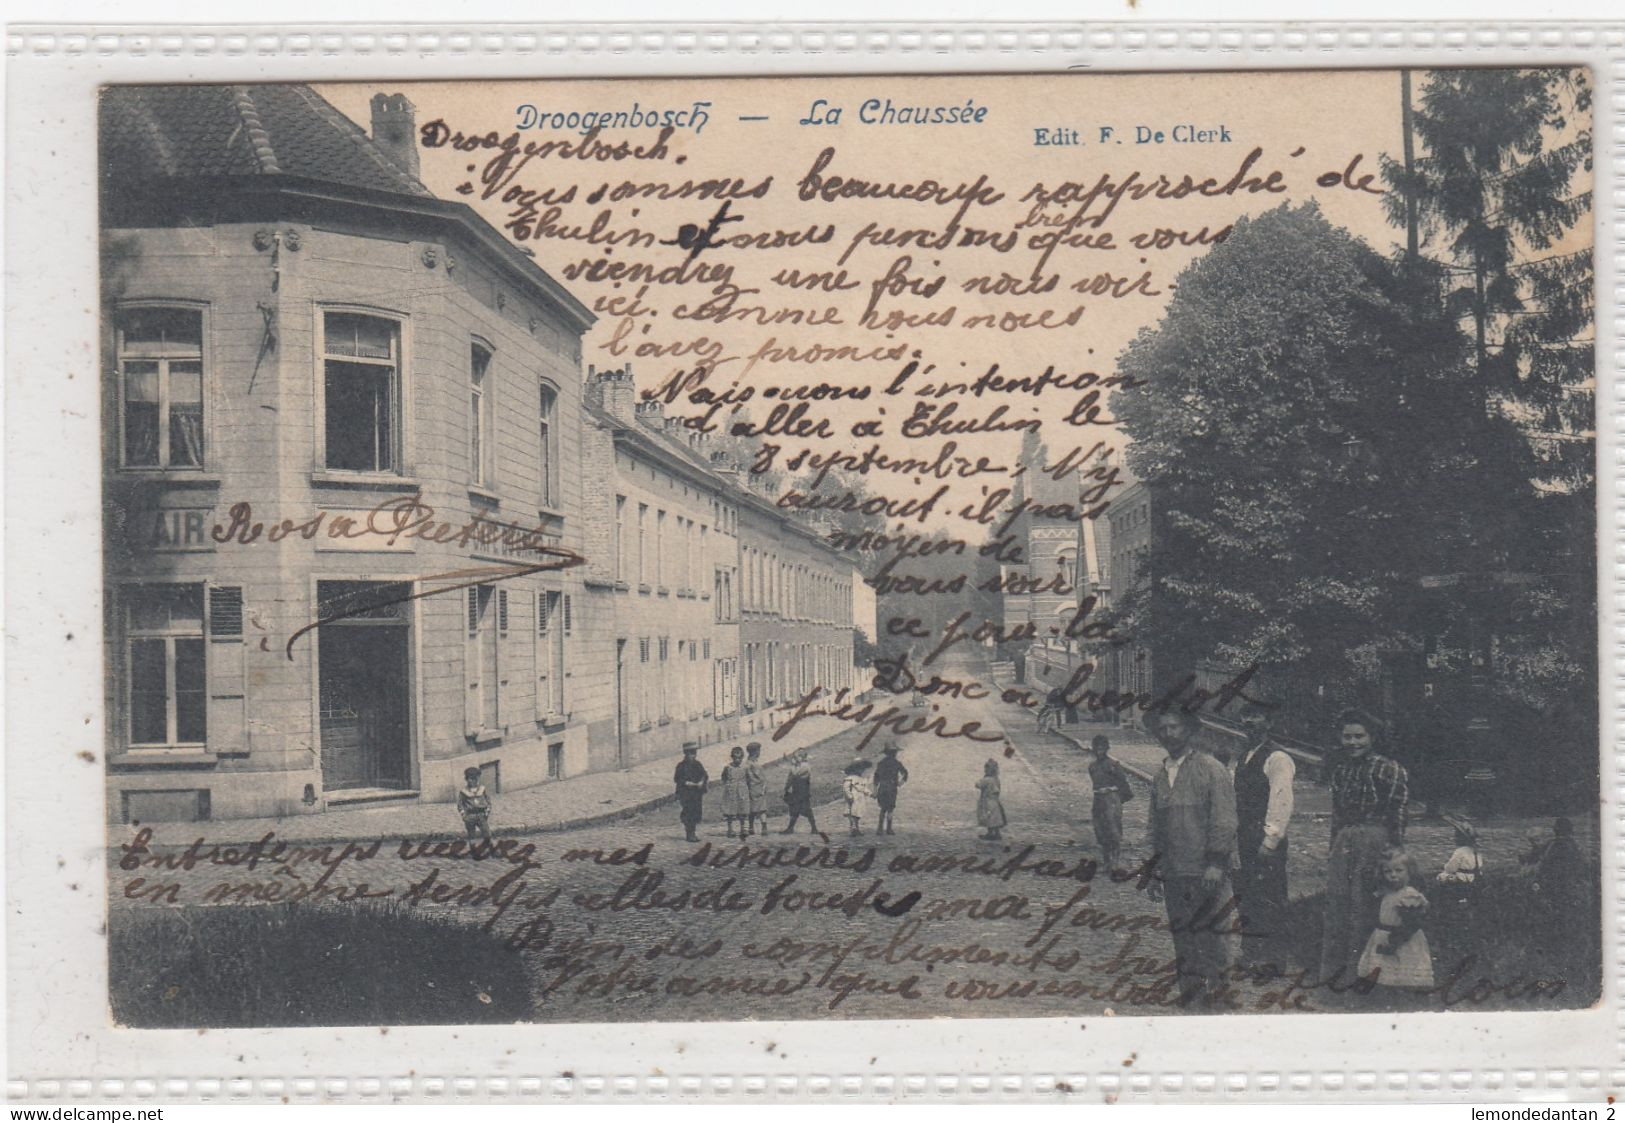 Droogenbosch — La Chaussée
Edit. F. De Clerk
Droogenbosch.
Nous sommes beaucoup rapproché de
Thulin et nous pensons bien que vous
viendrez une fois nous voir
ici. comme vous nous
l'avez promis.
Nais-nous l'intention
d'aller à Thulin le
8 septembre, N'y
aurait-il pas
moyen de
vous voir
ce jour-la
Donc à bientot
j'espère.
AIR
Rosa Pieters
Entretemps recevez mes sincères amitiés et
en même temps celles de toutes ma famille
Bien des compliments
Votre amie qui vous embrasse de loin
lemondedantan 2